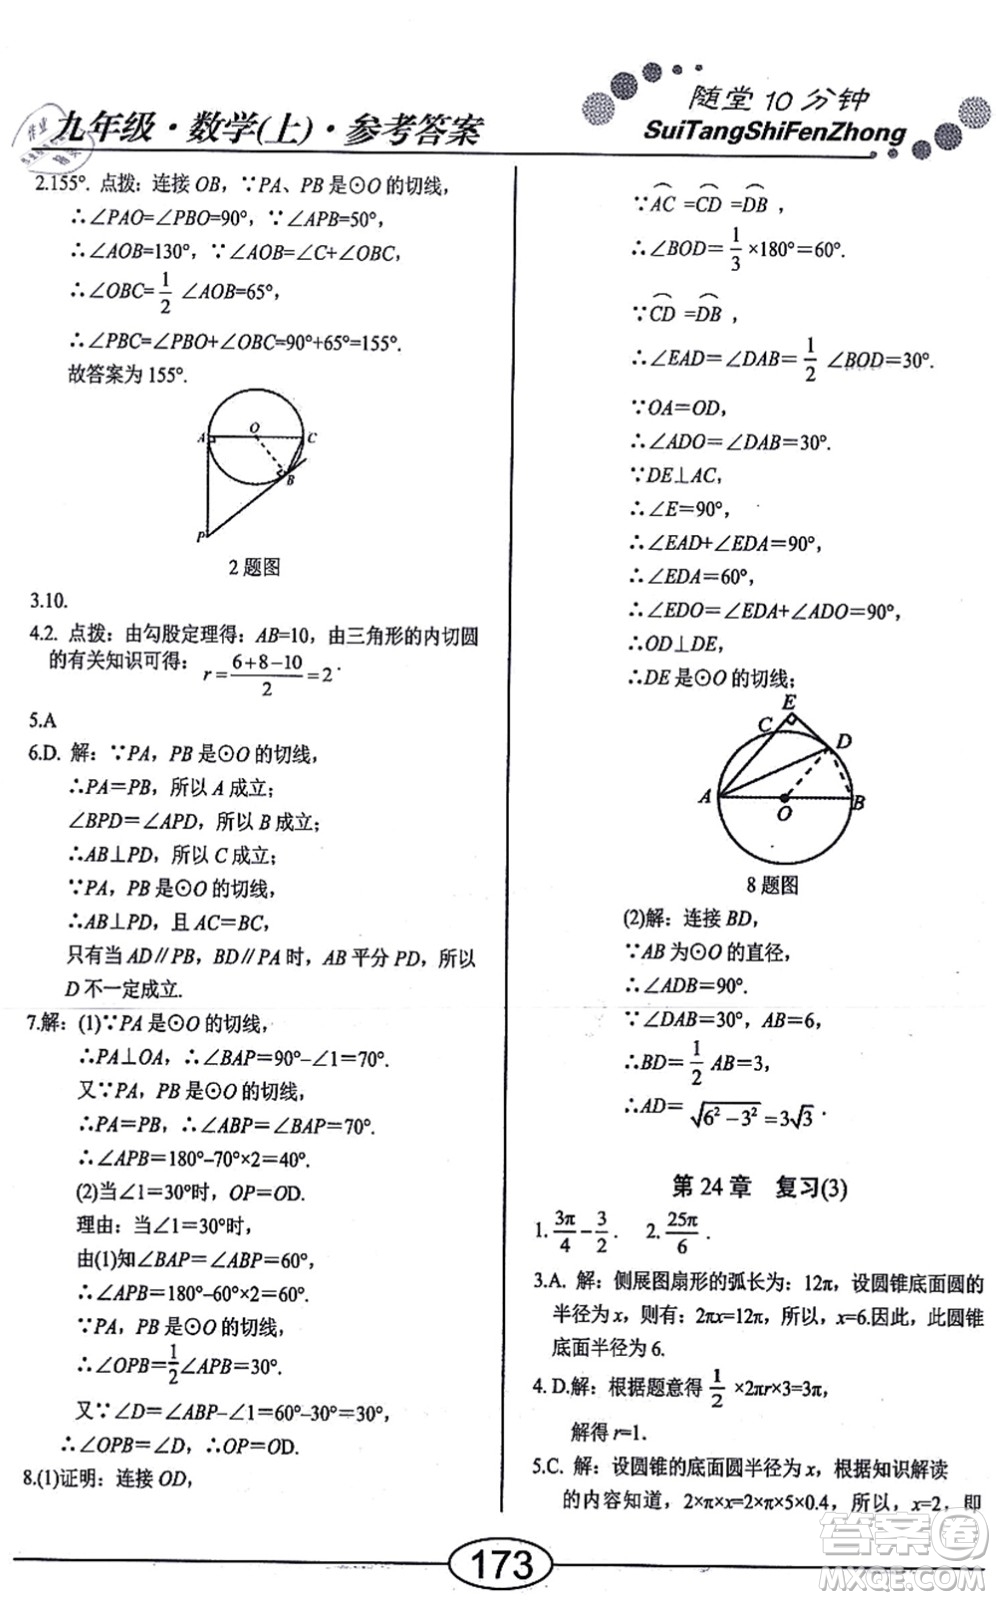 九年级·数学(上)·参考答案
随堂 10 分钟
SuiTangShiFenZhong
2.155°. 点拨：连接 OB，∵PA、PB 是⊙O 的切线，
∴∠PAO=∠PBO=90°，∵∠APB=50°，
∴∠AOB=130°，∵∠AOB=∠C+∠OBC，
∴∠OBC=1/2 ∠AOB=65°，
∴∠PBC=∠PBO+∠OBC=90°+65°=155°.
故答案为 155°.
A O C
B
P
2 题图
3.10.
4.2. 点拨：由勾股定理得：AB=10，由三角形的内切圆
的有关知识可得：r=(6+8-10)/2=2.
5.A
6.D. 解：∵PA，PB 是⊙O 的切线，
∴PA＝PB，所以 A 成立；
∠BPD＝∠APD，所以 B 成立；
∴AB⊥PD，所以 C 成立；
∵PA，PB 是⊙O 的切线，
∴AB⊥PD，且 AC＝BC，
只有当 AD∥PB，BD∥PA 时，AB 平分 PD，所以
D 不一定成立.
7.解：(1)∵PA 是⊙O 的切线，
∴PA⊥OA，∴∠BAP＝90°–∠1＝70°.
又∵PA，PB 是⊙O 的切线，
∴PA＝PB，∴∠ABP＝∠BAP＝70°.
∴∠APB＝180°–70°×2＝40°.
(2)当∠1＝30°时，OP＝OD.
理由：当∠1＝30°时，
由(1)知∠BAP＝∠ABP＝60°，
∴∠APB＝180°–60°×2＝60°.
∵PA，PB 是⊙O 的切线，
∴∠OPB＝1/2∠APB＝30°.
又∵∠D＝∠ABP–∠1＝60°–30°＝30°，
∴∠OPB＝∠D，∴OP＝OD.
8.(1)证明：连接 OD，
∵AC =CD =DB ，
∴∠BOD＝1/3 ×180°＝60°.
∵CD =DB ，
∴∠EAD＝∠DAB＝1/2 ∠BOD＝30°.
∵OA＝OD，
∴∠ADO＝∠DAB＝30°.
∵DE⊥AC，
∴∠E＝90°，
∴∠EAD+∠EDA＝90°，
∴∠EDA＝60°，
∴∠EDO＝∠EDA+∠ADO＝90°，
∴OD⊥DE，
∴DE 是⊙O 的切线；
E
C D
A O B
8 题图
(2)解：连接 BD，
∵AB 为⊙O 的直径，
∴∠ADB＝90°.
∵∠DAB＝30°，AB＝6，
∴BD＝1/2 AB＝3，
∴AD＝√(6²－3²)＝3√3 .
第 24 章 复习(3)
1.3π/4－3/2. 2.25π/6.
3.A. 解：侧展图扇形的弧长为：12π，设圆锥底面圆的
半径为 x，则有：2πx=12π，所以，x=6.因此，此圆锥
底面半径为 6.
4. D.解：根据题意得 1/2 ×2πr×3=3π，
解得 r=1.
5.C. 解：设圆锥的底面圆半径为 x，根据知识解读
的内容知道，2×π×x=2×π×5×0.4，所以，x=2，即
173
答案圈
MXQE.COM